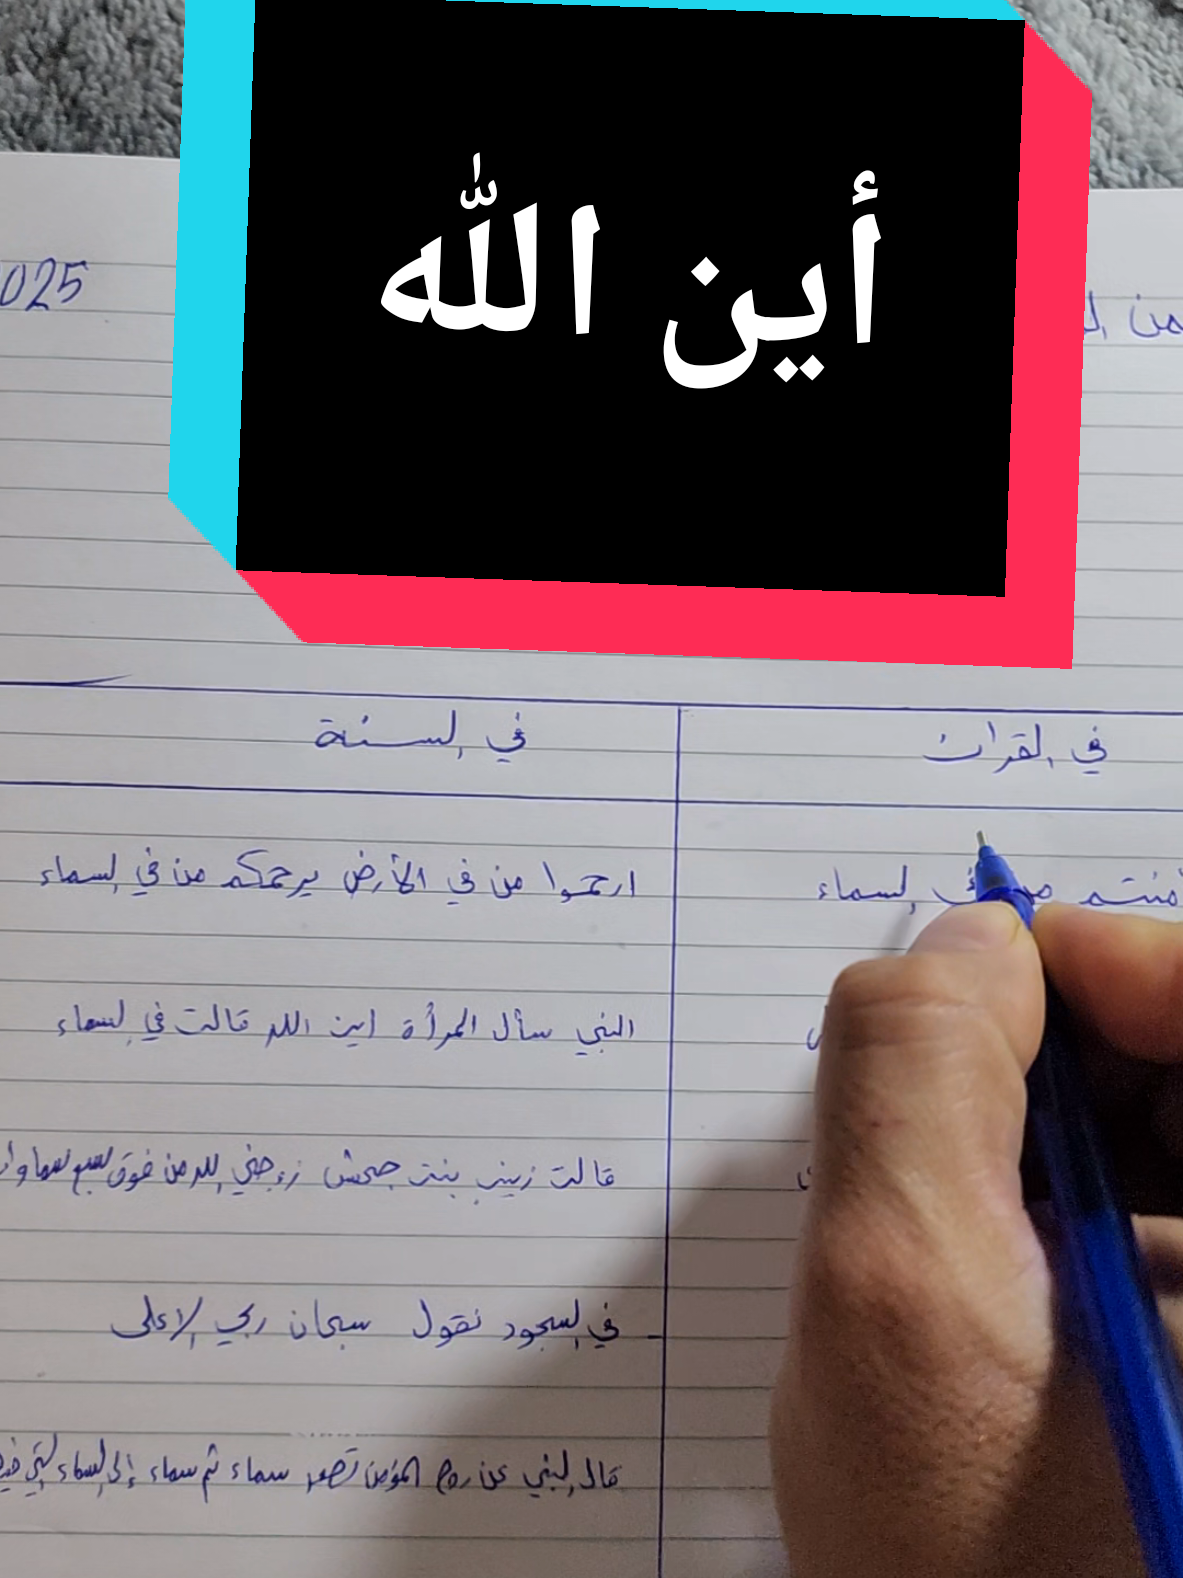 أين الله
025
في القران
في السنة
أمنتم السماء
ارحموا من في الأرض يرحمكم من في السماء
النبي سأل المرأة اين الله قالت في السماء
قالت زينب بنت جحش زوجني الله من فوق سبع سماوات
في السجود نقول سبحان ربي الاعلى
قال النبي عن روح المؤمن تصعد سماء ثم سماء إلى السماء التي